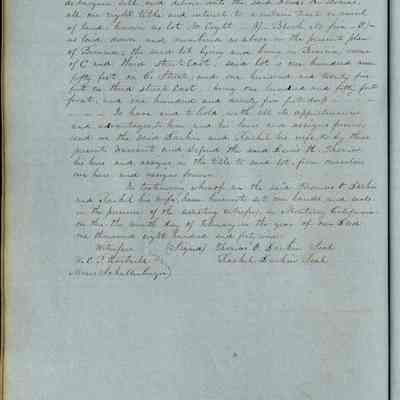 all our right title and interest to a certain tract or parcel
of land known as lot No Eight 8, Block
as laid down and numbered as above in the present plan
of Benicia, the said lot lying and being in Benicia, corner
of C and third Street East, said lot is one hundred and
fifty feet on C Street, and one hundred and twenty five
feet on third Street East, being one hundred and fifty feet
front, and one hundred and twenty five feet deep
To have and to hold with all its appurtenances
and advantages to him and his heirs and assigns forever
and we the said Larkin and Rachel his wife do by these
presents Warrant and defend the said
his heirs and assigns in the title to said lot, from ourselves
our heirs and assigns forever.
In testimony whereof we the said Thomas O. Larkin
and Rachel his wife, have hereunto set our hands and seals
in the presence of the attesting witnesses, in Monterey California
on this the ninth day of February in the year of our Lord
one thousand eight hundred and forty nine
Witness (Signed) Thomas O. Larkin Seal
Rachel Larkin Seal